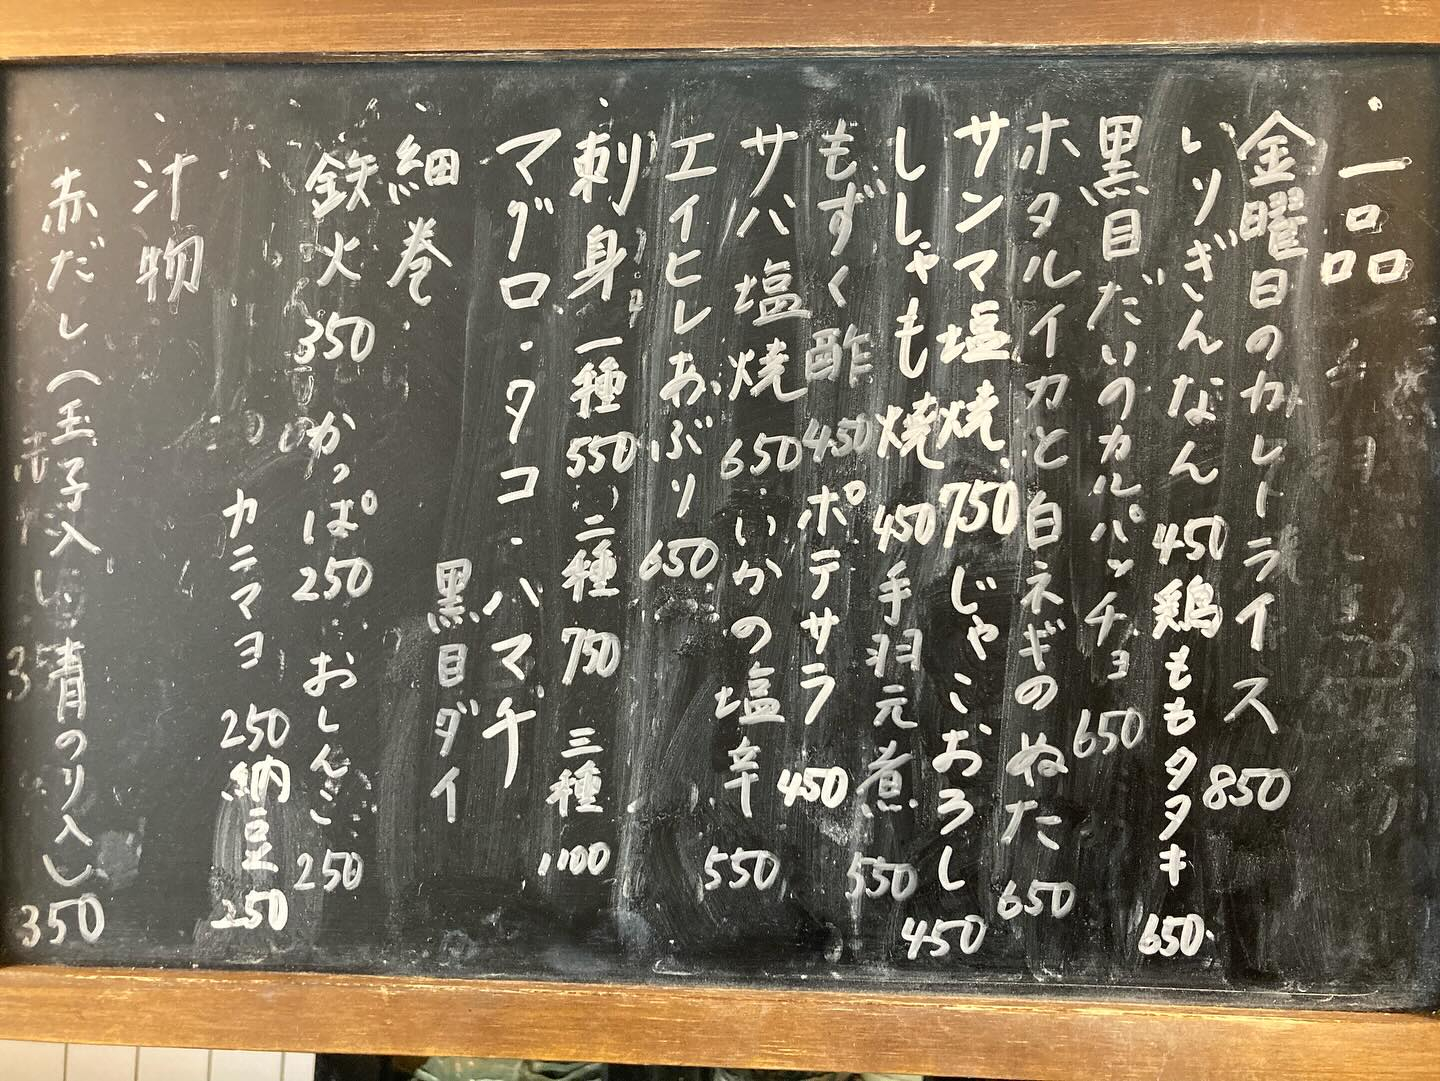 一品
金曜日のカレートライス 850
いりぎんなん 450 鶏ももタタキ 650
黒目だいのカルパッチョ 650
ホタルイカと白ネギのぬた 650
サンマ塩焼 750 じゃこおろし 450
ししゃも焼 450 手羽元煮 550
もずく酢 450 ポテサラ 450
サバ塩焼 650 いかの塩辛 550
エイヒレあぶり 650
刺身 一種 550 二種 750 三種 1100
マグロ・タコ・ハマチ
黒目ダイ
細巻
鉄火 350 かっぱ 250 おしんこ 250
カニマヨ 250 納豆 250
汁物
赤だし(玉子入り、青のり入) 350